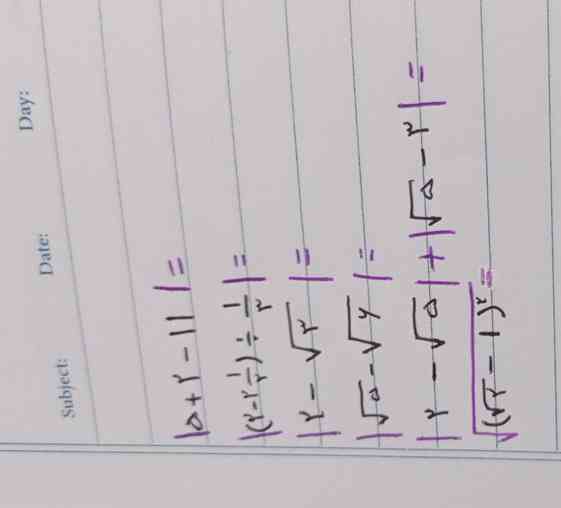 Subject: Date: Day:
|۵+۲-۱۱|=
|(۲-۲ ۱/۲) ÷ ۱/۳|=
|۲-√۳|=
|√۵-√۶|=
|۲-√۵|+|√۵-۳|=
√(√۲-۱)²=